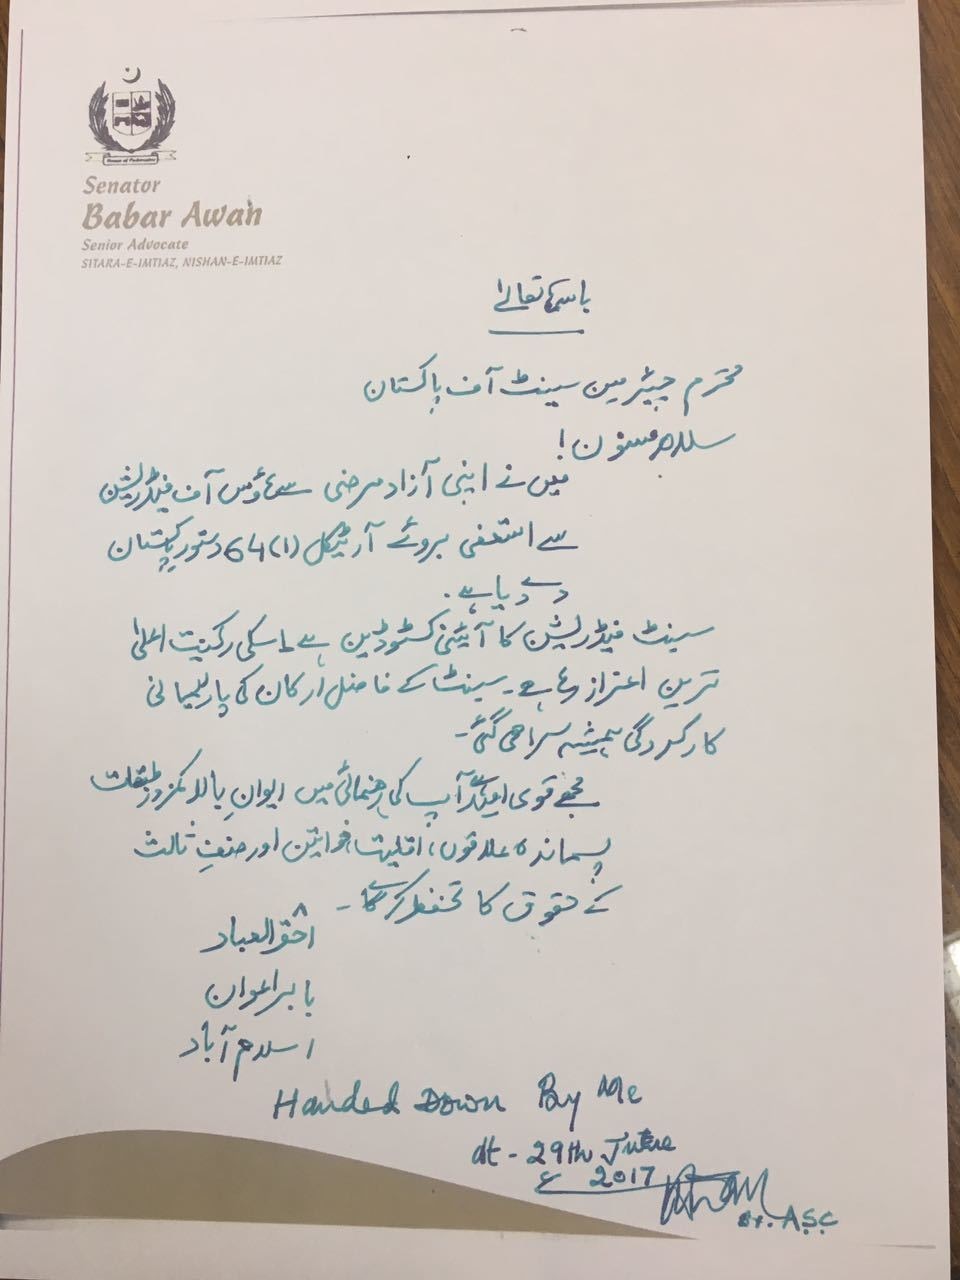 House of Federation
Senator
Babar Awan
Senior Advocate
SITARA-E-IMTIAZ, NISHAN-E-IMTIAZ
باسمہ تعالیٰ
محترم چیئرمین سینٹ آف پاکستان
سلام مسنون!
میں نے اپنی آزاد مرضی سے ہاؤس آف فیڈریشن
سے استعفی بروئے آرٹیکل (1) 64 دستور پاکستان
دے دیا ہے.
سینٹ فیڈریشن کا آئینی کسٹوڈین ہے اسکی رکنیت اعلیٰ
ترین اعزاز رہا ہے۔ سینٹ کے فاضل ارکان کی پارلیمانی
کارکردگی ہمیشہ سراہی گئی۔
مجھے قوی امید ہے آپ کی رہنمائی میں ایوانِ بالا کمزور طبقات
پسماندہ علاقوں، اقلیت، خواتین اور صنفِ ثالث
کے حقوق کا تحفظ کرے گا۔
احقر العباد
بابر اعوان
اسلام آباد
Handed Down By Me
dt - 29th June
2017
ASC